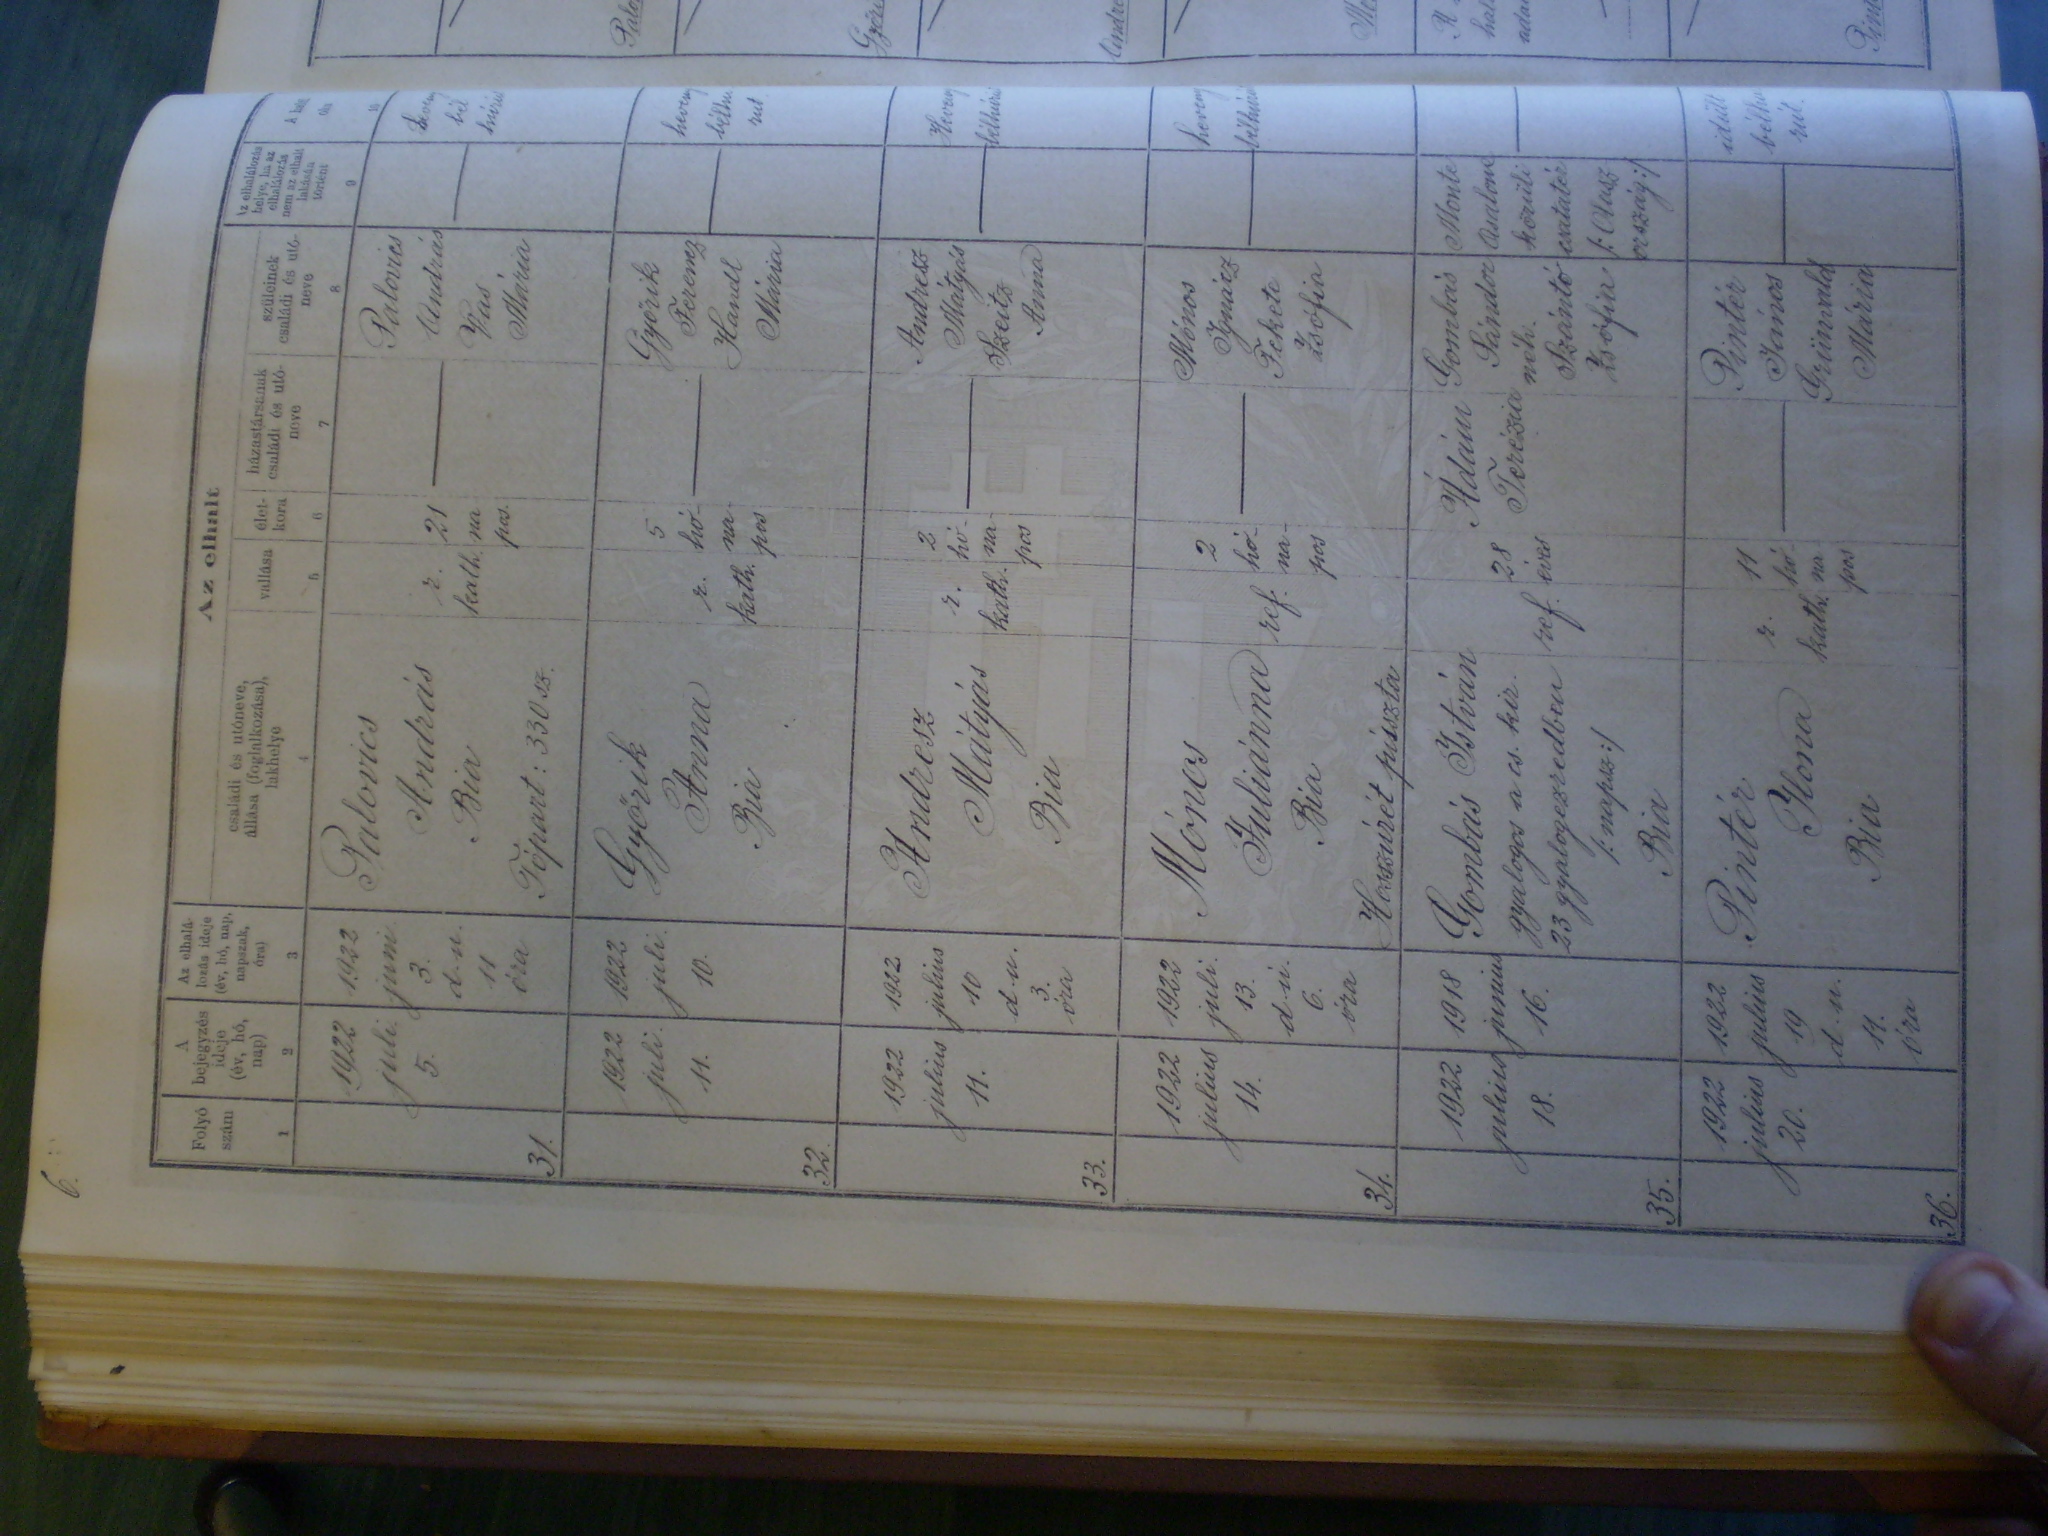 6.
Az elhalt
Folyó
szám
A
bejegyzés
ideje
(év, hó,
nap)
Az elhalá-
lozás ideje
(év, hó, nap,
napszak,
óra)
családi és utóneve,
állása (foglalkozása),
lakhelye
vallása
élet-
kora
házastársának
családi és utó-
neve
szüleinek
családi és utó-
neve
Az elhalálozás
helye, ha az
elhalálozás
nem az elhalt
lakásán
történt
1
2
3
4
5
6
7
8
9
31.
1922
juli.
5.
1922
juni.
3.
d. u.
11
óra
Palovics
András
Bia
Tópart: 330 sz.
r.
kath.
21
na
pos.
Palovics
András
Vas
Mária
heveny
bél
hurut
32.
1922
juli.
11.
1922
juli.
10.
Győrik
Anna
Bia
r.
kath.
5
hó-
na-
pos
Győrik
Ferencz
Handl
Mária
heveny
bélhu
rut.
33.
1922
július
11.
1922
július
10
d. u.
3.
óra
Andresz
Mátyás
Bia
r.
kath.
2
hó-
na-
pos
Andresz
Mátyás
Szeitz
Anna
Heveny
bélhurut
34.
1922
július
14.
1922
juli.
13.
d. u.
6.
óra
Mónos
Juliánna
Bia
Hosszúrét puszta
ref.
2
hó-
na-
pos
Mónos
Ignácz
Fekete
Zsófia
heveny
bélhurut
35.
1922
július
18.
1918
június
16.
Gombás István
gyalogos a cs. kir.
23 gyalogezredben
/: napsz:/
Bia
ref.
28
éves
Ádám
Terézia
Gombás
Sándor
néh.
Szántó
Zsófia
Monte
Asalone
körüli
csatatér
/: Olasz
ország:/
36.
1922
július
20.
1922
július
19
d. u.
11.
óra
Pintér
Ilona
Bia
r.
kath.
11
hó-
na-
pos
Pintér
János
Grünvald
Mária
idült
bélhu
rut.